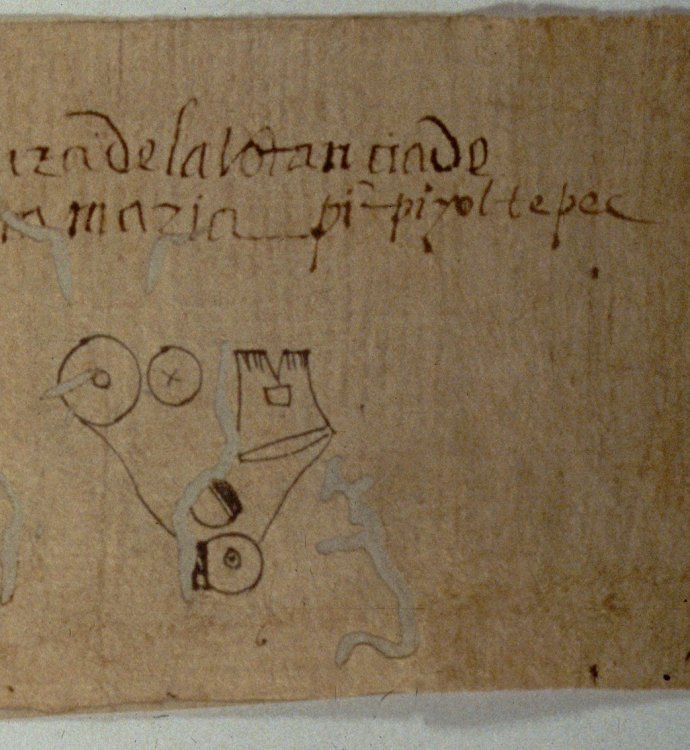 ura de la lotan cia de
na maria pi~ piyoltepec